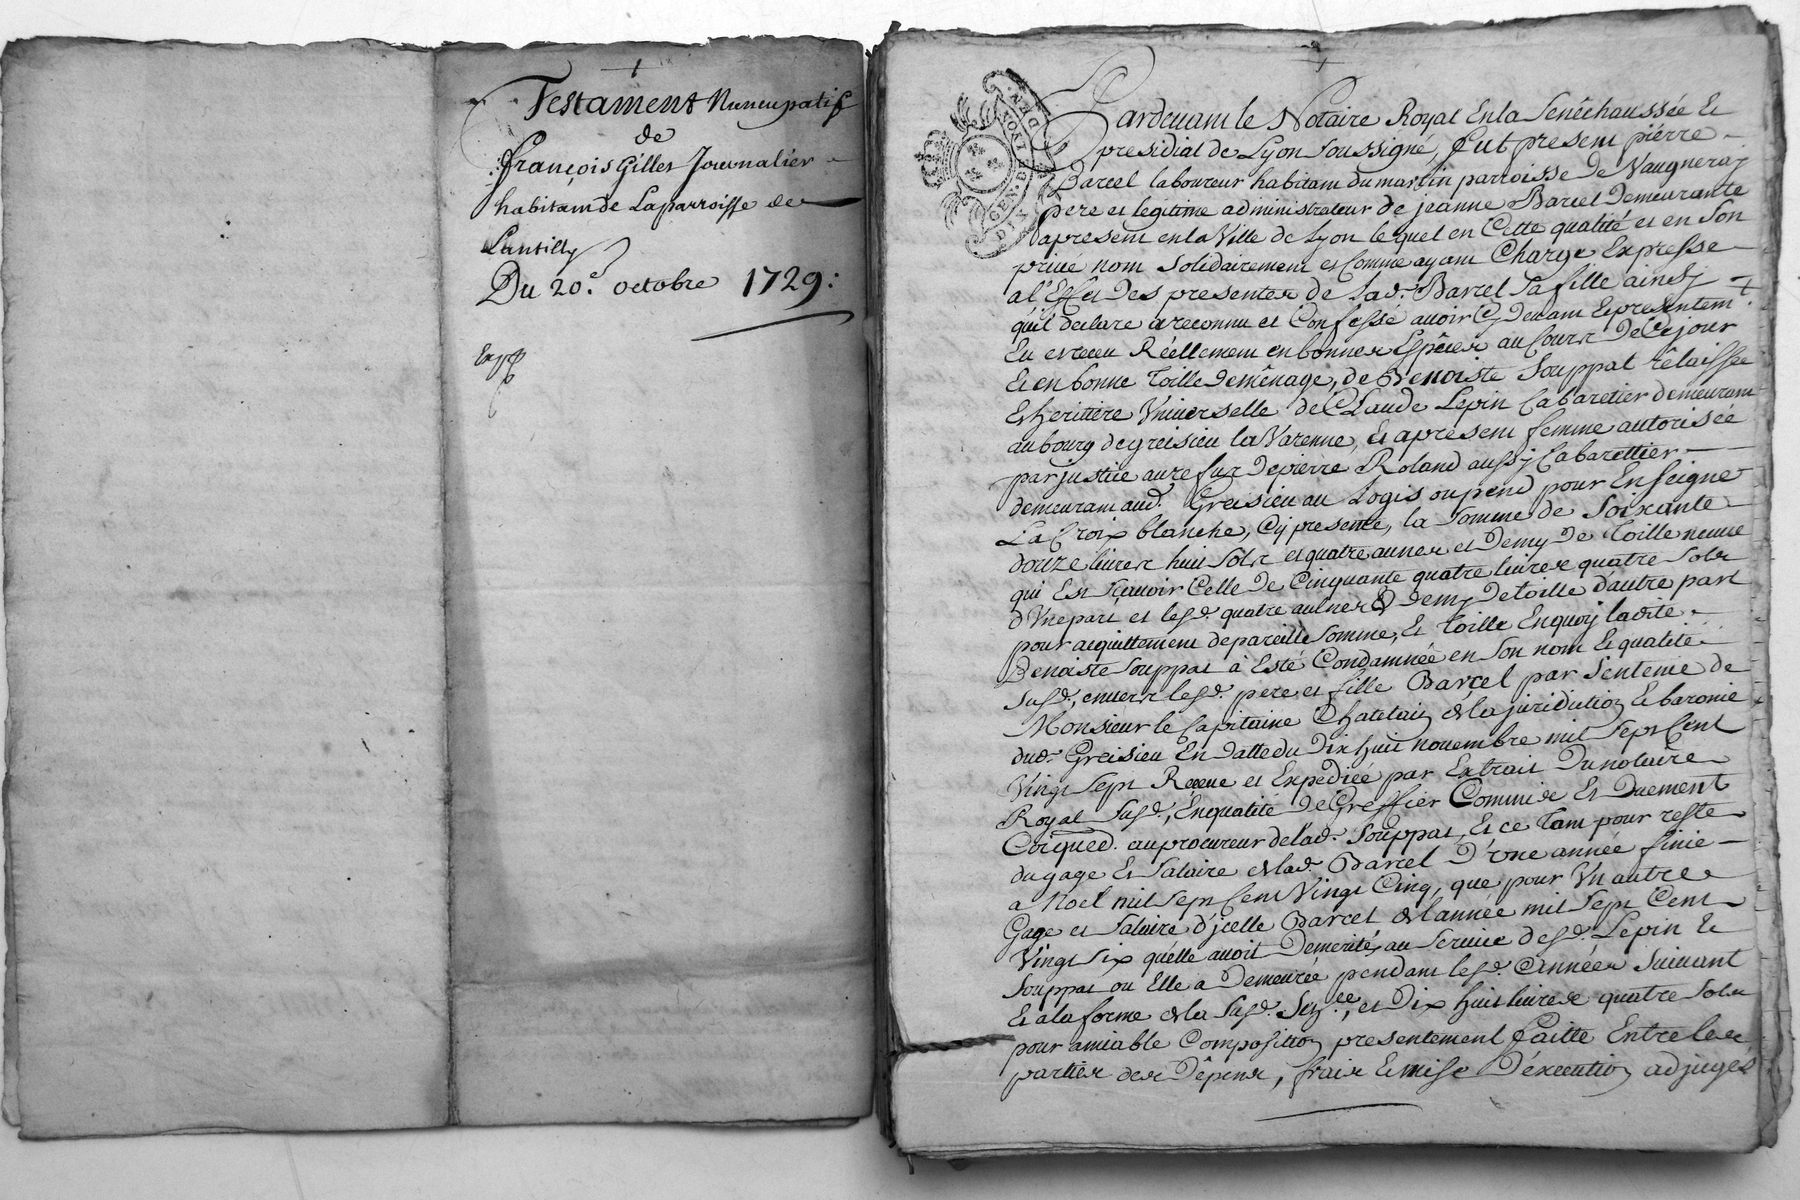 Testament Nuncupatif
de
françois Gilles Journalier
habitant de Laparroisse de
Lantilly
Du 20e. octobre 1729:
Expp
GEN. DE LYON
Pardevant le Notaire Royal En la Senêchaussée Et
presidial de Lyon soussigné, fut present pierre
Barcel laboureur habitant du martin parroisse de Vaugneray
pere et legitime administrateur de jeanne Barcel Demeurante
apresent en la Ville de Lyon lequel en Cette qualité et en Son
privé nom Solidairement et Comme ayant Charge Expresse
a l'Effet Des presentes de lad. Barcel Sa fille ainsy
qu'il declare a reconnu et Confessé avoir Cy Devant Et presentemt.
Eu et receu Réellement en bonnes Espêces au Cours De Ce jour
Et en bonne Toille De mênage, de Benoiste Souppat rêlaissée
Et heritiere Vniverselle de Claude Lepin Cabaretier demeurant
au bourg de greisieu la Varenne, Et apresent femme autorisée
par justice au refus De pierre Roland aussy Cabarettier
demeurant aud. Greisieu au Logis ou pend pour Enseigne
La Croix blanche, Cy presente, la Somme de Soixante
douze livres huit Sols et quatre aunes et Demy De Toille neuve
qui Est Sçavoir Celle De Cinquante quatre livres quatre Sols
d'Vne part et lesd. quatre aulnes & demy De toille d'autre part
pour acquittement de pareille Somme, Et Toille En quoy ladite
Benoiste Souppat à Esté Condamnée en Son nom Et qualité
susd., envers lesd. pere et fille Barcel par Sentence de
Monsieur le Capitaine Chatelain de la juridiction Et baronie
dud. Greisieu En Datte du Dix huit novembre mil Sept Cent
Vingt Sept Receue et Expediée par Extrait Du notaire
Royal Susd., En qualité De Greffier Commis Et Duement
au procureur de lad. Souppat, Et ce Tant pour reste
du gage Et Salaire de lad. Barcel D'vne année finie
a Noel mil Sept Cent Vingt Cinq, que pour Vn autre
Gage et Salaire d'jcelle Barcel de l'année mil Sept Cent
Vingt Six quelle avoit Demerités au Service desd. Lepin Et
Souppat ou Elle a Demeurée pendant lesd. Années Suivant
Et a la forme de la Susd. Senee., et Dix huit livres quatre Sols
pour amiable Composition presentement faitte Entre les
parties des Dêpens, frais Et mise D'éxecution adjugés